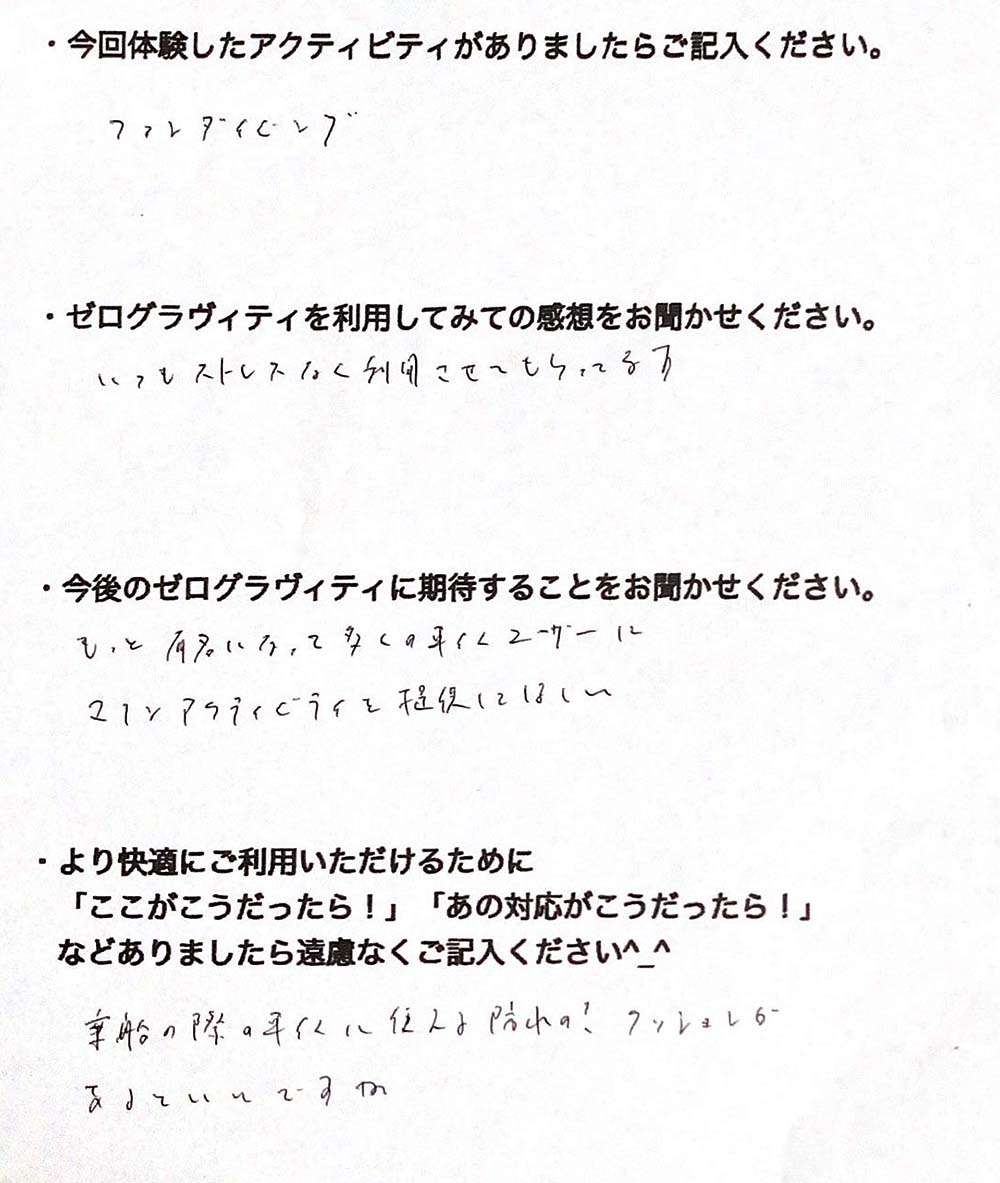 ・今回体験したアクティビティがありましたらご記入ください。
ファンダイビング
・ゼログラヴィティを利用してみての感想をお聞かせください。
いつもストレスなく利用させてもらってる
・今後のゼログラヴィティに期待することをお聞かせください。
もっと有名になって多くの車イスユーザーに
マリンアクティビティを提供してほしい
・より快適にご利用いただけるために
「ここがこうだったら！」「あの対応がこうだったら！」
などありましたら遠慮なくご記入ください^_^
乗船の際の車イスに 防水の! クッション
あるといいですね